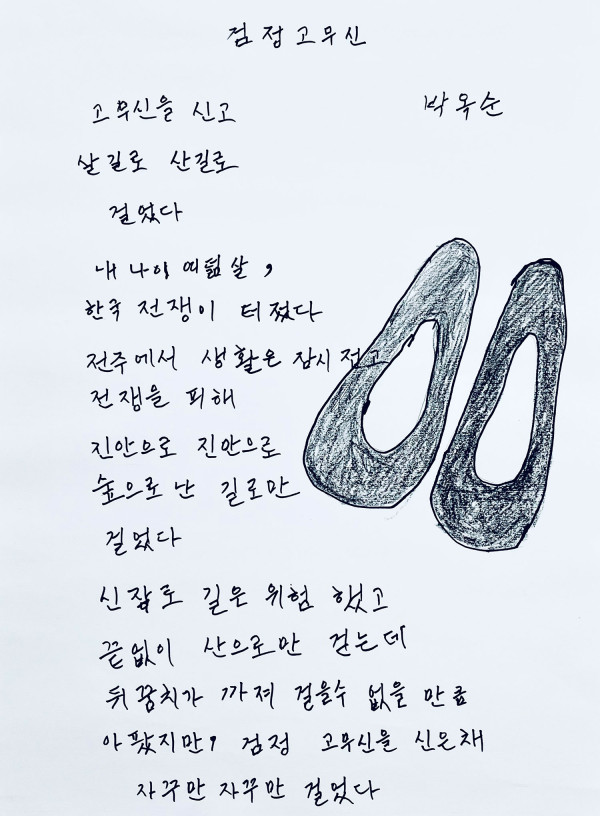 검정고무신
박옥순
고무신을 신고
살길로 산길로
걸었다
내 나이 여덟살,
한국 전쟁이 터졌다
전주에서 생활은 잠시 접고
전쟁을 피해
진안으로 진안으로
숲으로 난 길로만
걸었다
신작로 길은 위험 했고
끝없이 산으로만 걷는데
뒤꿈치가 까져 걸을수 없을 만큼
아팠지만, 검정 고무신을 신은채
자꾸만 자꾸만 걸었다